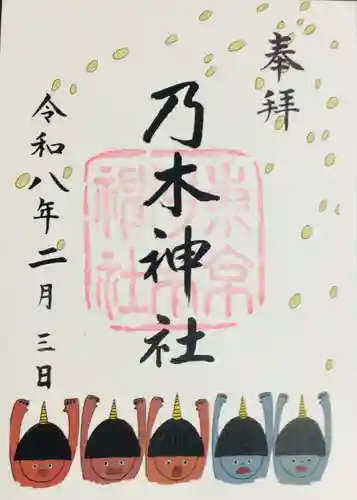 奉拝
乃木神社
東京
乃木
神社
令和八年二月三日